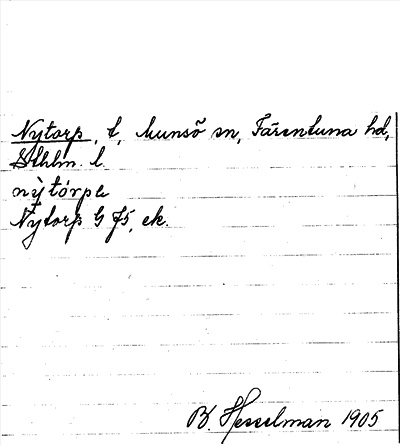 Nytorp, t, Munsö sn, Färentuna hd,
Sthlm. l.
nỳtórpa
Nytorp G f5, ek.
B. Hesselman 1905